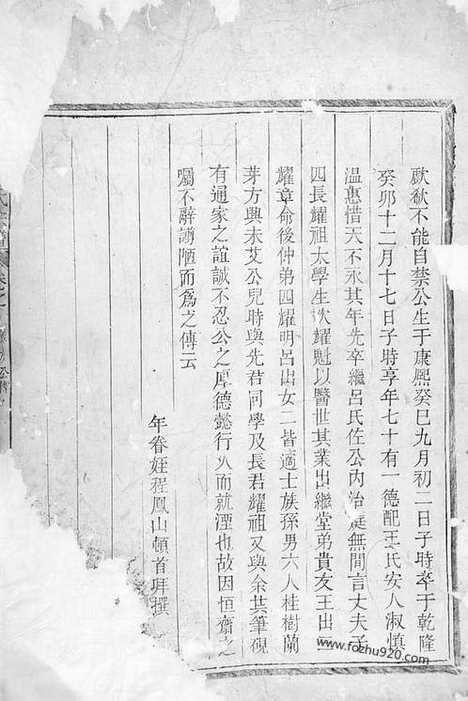 歔欷不能自禁公生于康熙癸巳九月初二日子時卒于乾隆
癸卯十二月十七日子時享年七十有一德配王氏安人淑慎
溫惠惜天不永其年先卒繼呂氏佐公內治庭無間言丈夫子
四長耀祖太學生次耀魁以醫世其業出繼堂弟貴友王出
耀章命後仲弟四耀明呂出女二皆適士族孫男六人桂樹蘭
芽方興未艾公兒時與先君同學及長君耀祖又與余共筆硯
有通家之誼誠不忍公之厚德懿行久而就湮也故因恒齋之
囑不辭謭陋而為之傳云
年眷姪程鳳山頓首拜撰
www.fozhu920.com